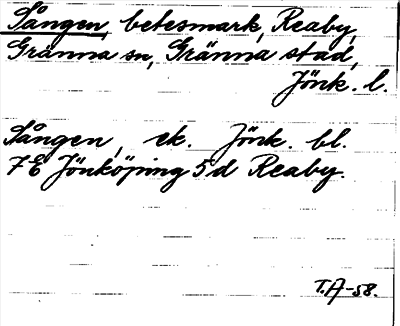 Sången, betesmark, Reaby,
Gränna sn, Gränna stad,
Jönk. l.
Sången, ek. Jönk. bl.
7 E Jönköping 5 d Reaby.
T.A-58.